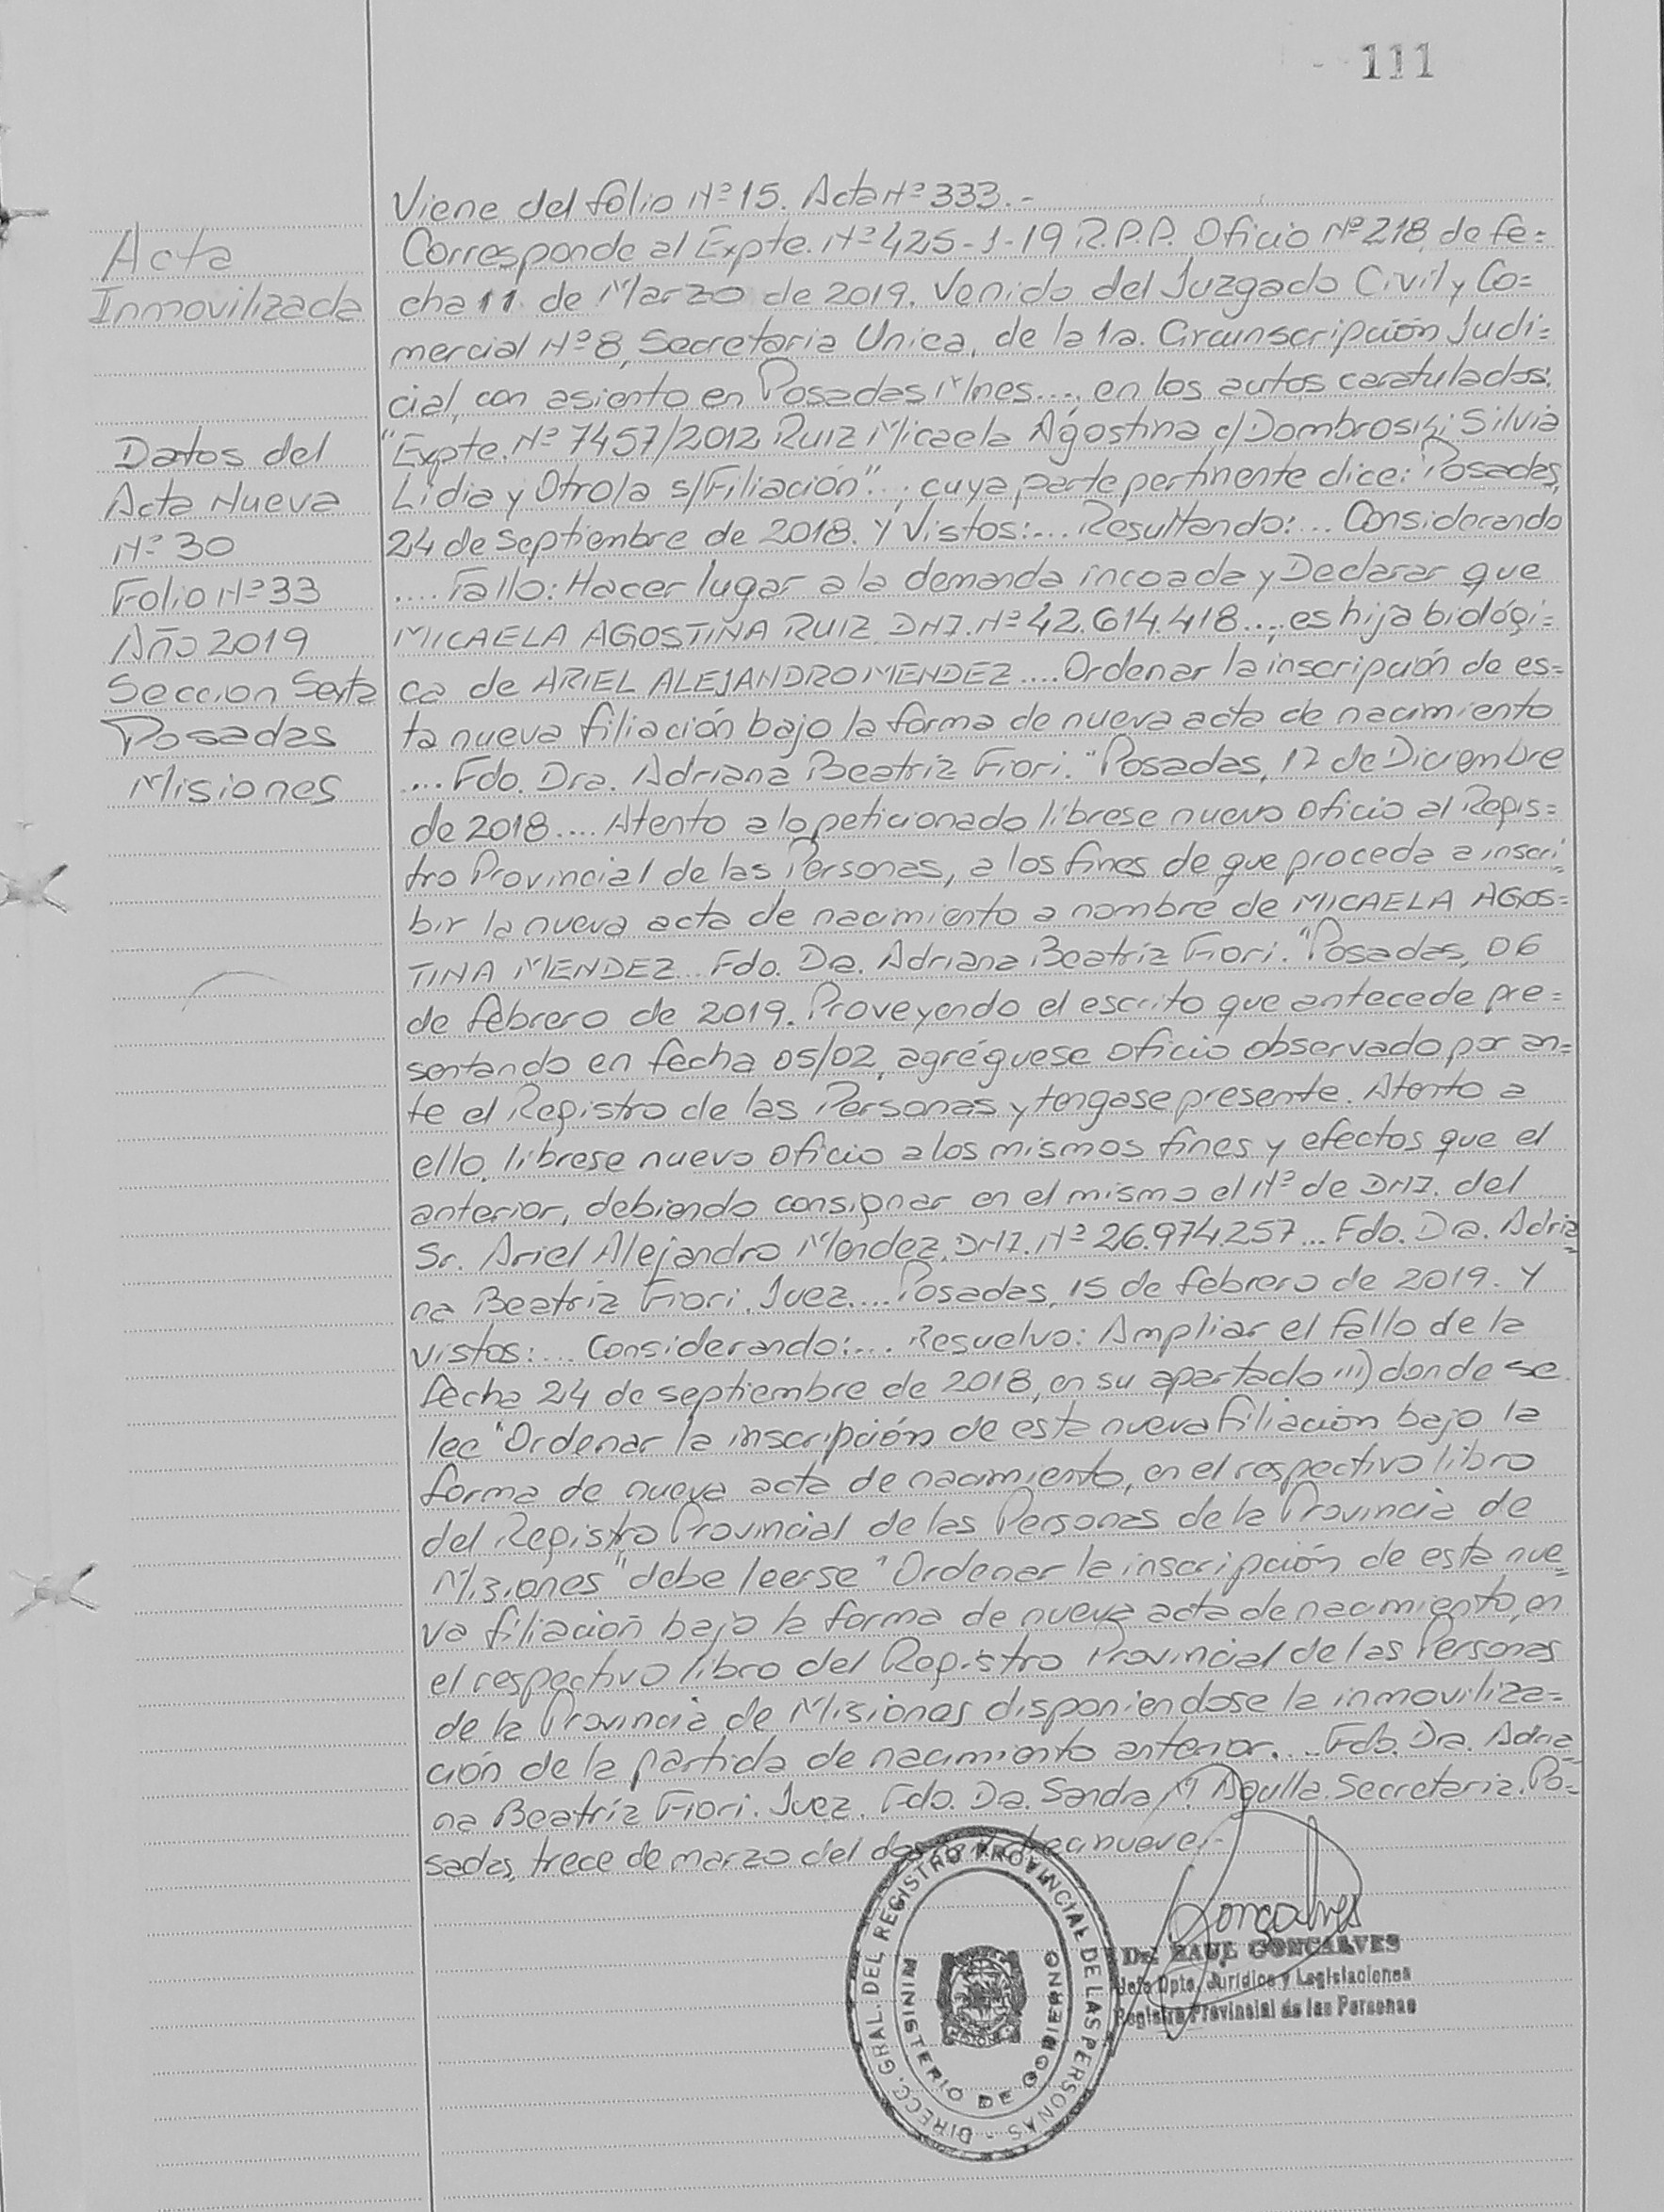 111
Acta
Inmovilizada
Datos del
Acta Nueva
Nº 30
Folio Nº 33
Año 2019
Seccion Sexta
Posadas
Misiones
Viene del folio Nº 15. Acta Nº 333.-
Corresponde al Expte. Nº 425-1-19 R.P.P. Oficio Nº 218, de fe=
cha 11 de Marzo de 2019. Venido del Juzgado Civil y Co=
mercial Nº 8, Secretaria Unica, de la 1a. Circunscripción Judi=
cial, con asiento en Posadas Mnes..., en los autos caratulados:
"Expte. Nº 7457/2012 Ruiz Micaela Agostina c/Dombroski Silvia
Lidia y Otro/a s/Filiación"... cuya parte pertinente dice: Posadas,
24 de Septiembre de 2018. Y Vistos:... Resultando:... Considerando
.... Fallo: Hacer lugar a la demanda incoada y Declarar que
MICAELA AGOSTINA RUIZ DNI. Nº 42.614.418..., es hija biológi=
ca de ARIEL ALEJANDRO MENDEZ .... Ordenar la inscripción de es=
ta nueva filiación bajo la forma de nueva acta de nacimiento
.... Fdo. Dra. Adriana Beatriz Fiori. "Posadas, 12 de Diciembre
de 2018.... Atento a lo peticionado líbrese nuevo oficio al Regis=
tro Provincial de las Personas, a los fines de que proceda a inscri=
bir la nueva acta de nacimiento a nombre de MICAELA AGOS=
TINA MENDEZ... Fdo. Dra. Adriana Beatriz Fiori. "Posadas, 06
de febrero de 2019. Proveyendo el escrito que antecede pre=
sentando en fecha 05/02, agréguese oficio observado por an=
te el Registro de las Personas y tengase presente. Atento a
ello, líbrese nuevo oficio a los mismos fines y efectos que el
anterior, debiendo consignar en el mismo el Nº de DNI. del
Sr. Ariel Alejandro Mendez, DNI. Nº 26.974.257... Fdo. Dra. Adria=
na Beatriz Fiori. Juez.... Posadas, 15 de febrero de 2019. Y
vistos:... Considerando:.... Resuelvo: Ampliar el fallo de la
fecha 24 de septiembre de 2018, en su apartado III) donde se
lee "Ordenar la inscripción de esta nueva filiación bajo la
forma de nueva acta de nacimiento, en el respectivo libro
del Registro Provincial de las Personas de la Provincia de
Misiones" debe leerse "Ordenar la inscripción de esta nue=
va filiación bajo la forma de nueva acta de nacimiento, en
el respectivo libro del Registro Provincial de las Personas
de la Provincia de Misiones disponiendose la inmoviliza=
ción de la partida de nacimiento anterior.... Fdo. Dra. Adria=
na Beatríz Fiori. Juez. Fdo. Dra. Sandra M. Agulla. Secretaria. Po=
sadas, trece de marzo del dos mil diecinueve.-
DIRECC. GRAL. DEL REGISTRO PROVINCIAL DE LAS PERSONAS
MINISTERIO DE GOBIERNO
Dr. RAUL GONCALVES
Jefe Dpto. Jurídico y Legislaciones
Registro Provincial de las Personas